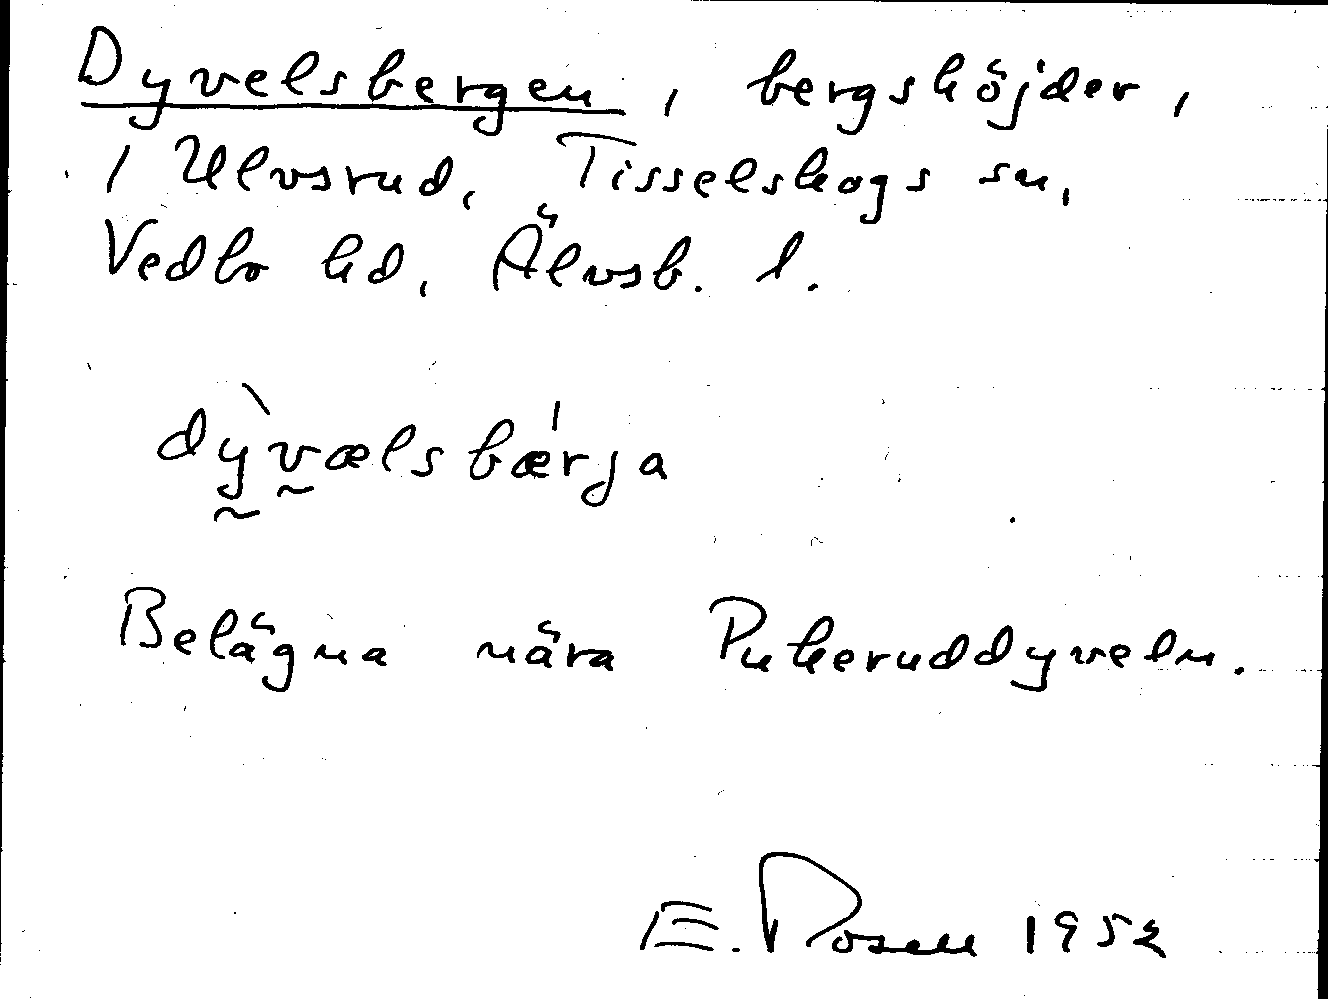 Dyvelsbergen, bergshöjder,
i Ulvsrud, Tisselskogs sn,
Vedbo hd, Älvsb. l.
dỳvælsbær̍ja
Belägna nära Pukeruddyveln.
E. Rosell 1952